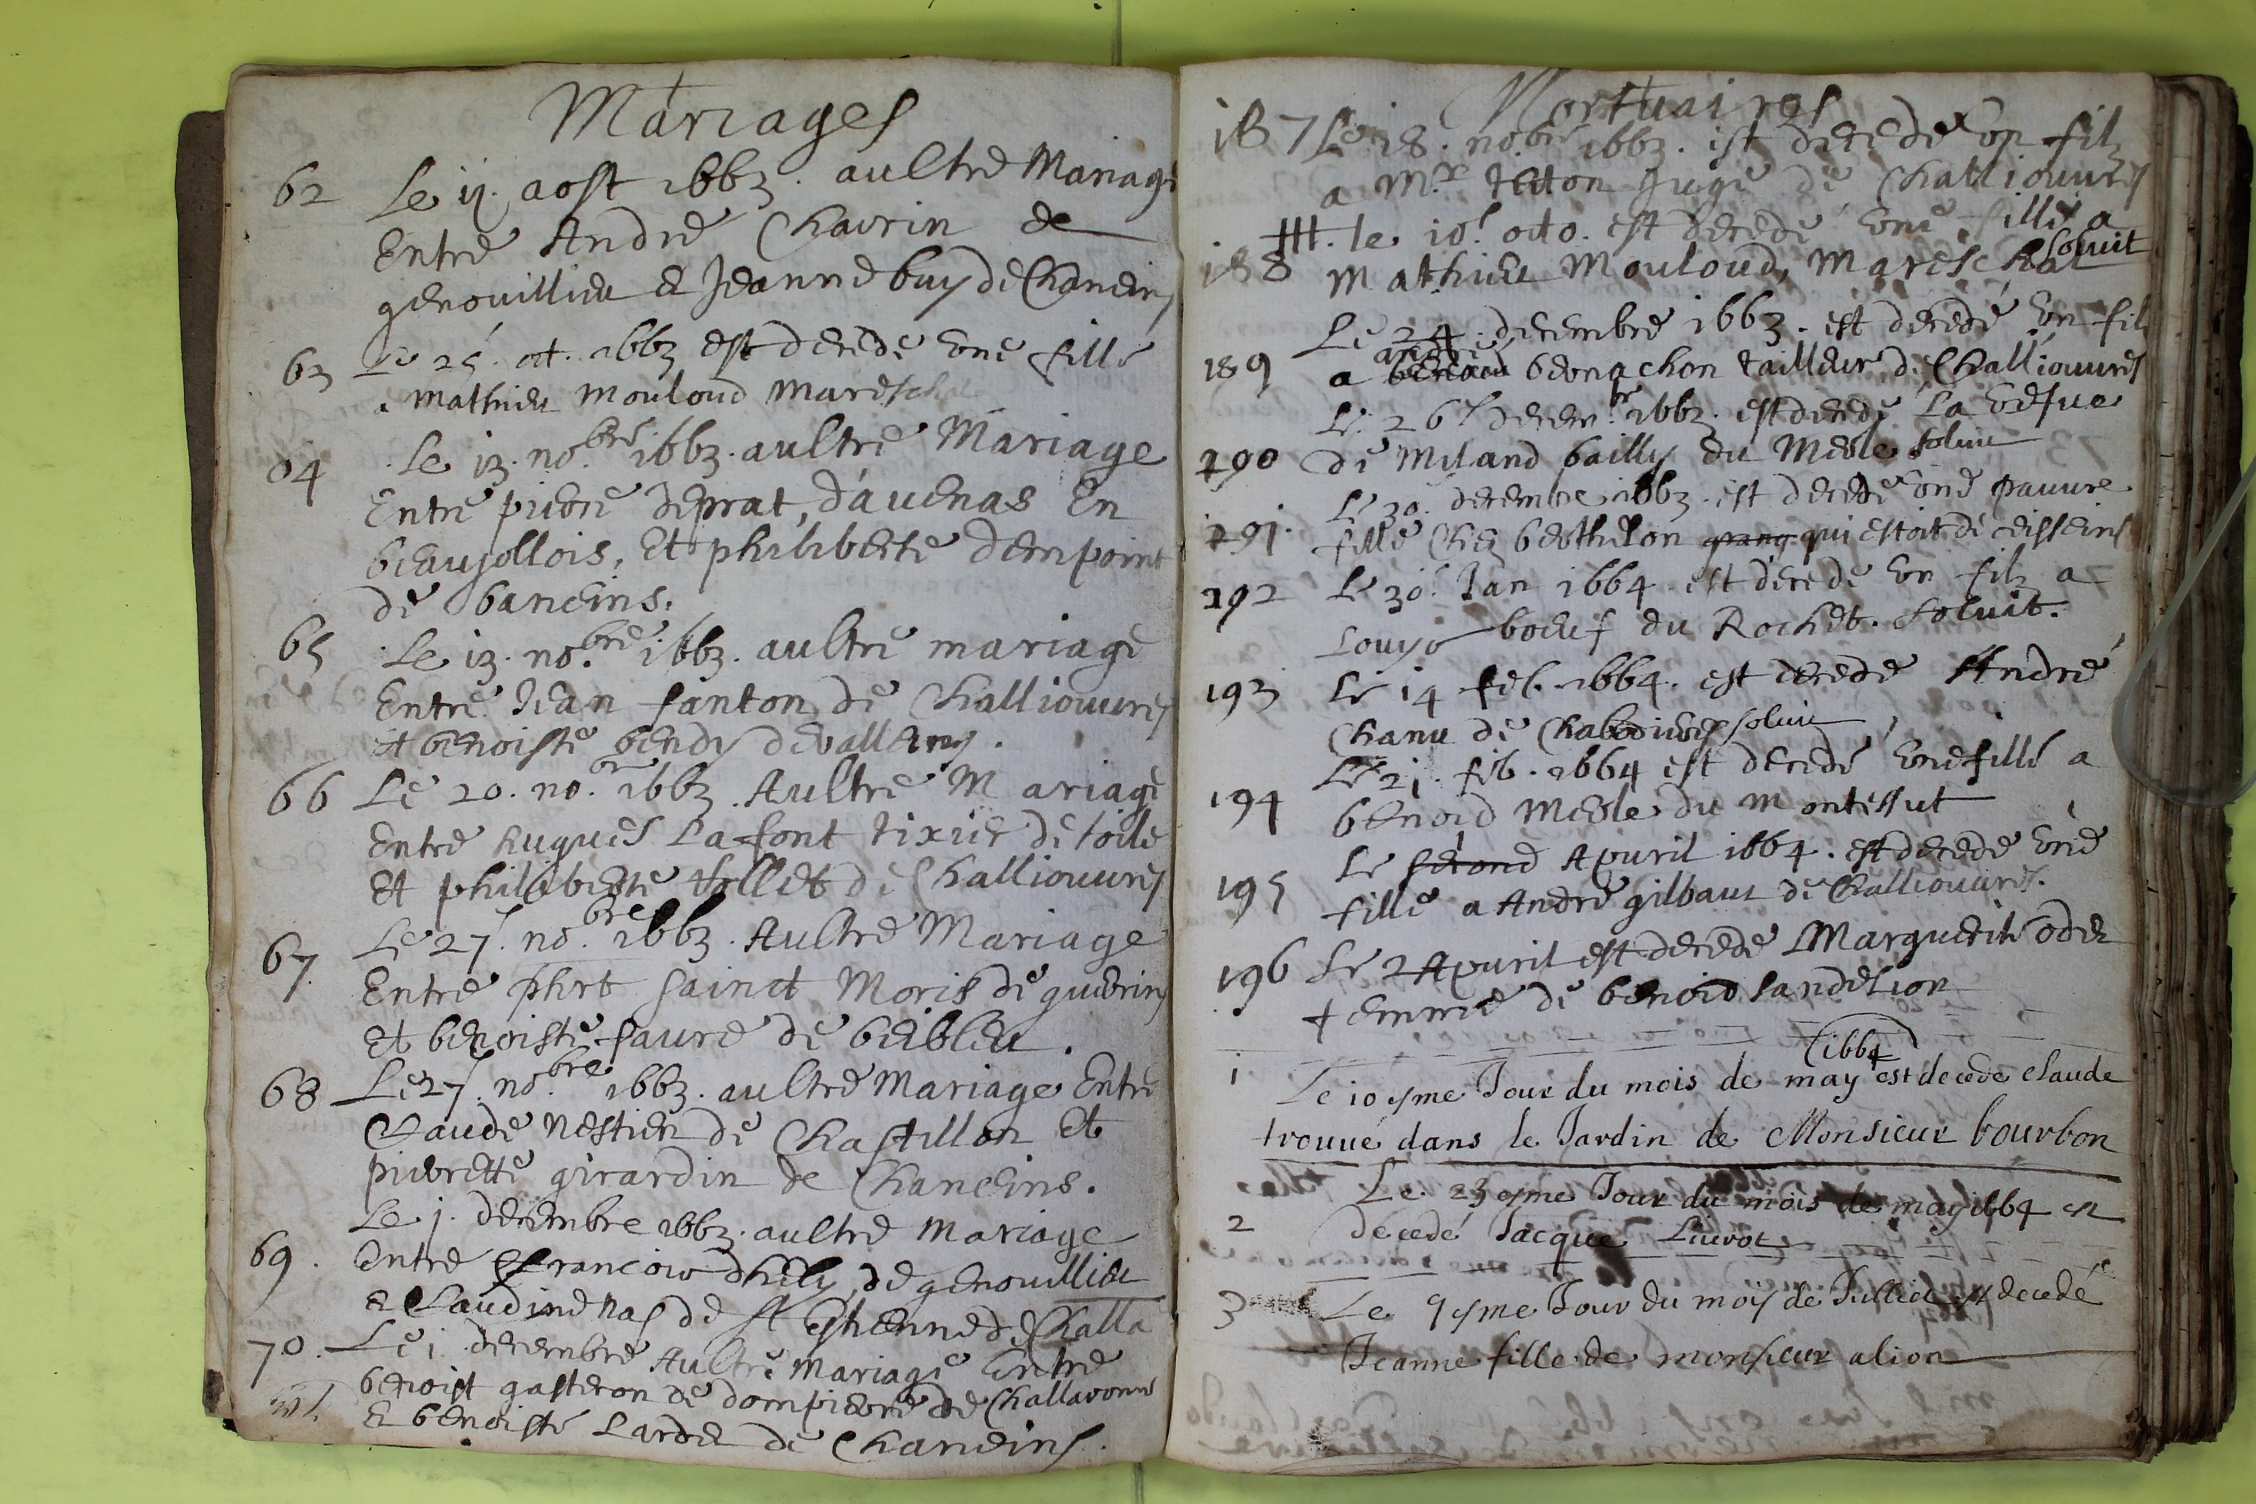 Mariages
62 Le ij. aost 1663. aultre Mariage
Entre André Chavrin de
genouillieu & Jeanne buy de Chaneins
63 Le 25. oct. 1663 est decede une fille
a Mathieu Mouloud Mareschal
64 Le 13. no.bre 1663. aultre Mariage
Entre pierre deprat, d'auenas En
beaujollois, Et philiberte dempoint
de baneins.
65 Le 13. no.bre 1663. aultre mariage
Entre Jean fanton de Challiouures
et benoiste bendy de valleins.
66 Le 20. no.bre 1663. Aultre Mariage
Entre hugues Lafont tixier de toile
Et philiberte follet de Challiouures
67. Le 27. no.bre 1663. Aultre Mariage
Entre phrt sainct Moris de guerins
Et benoiste faure de beibleu.
68 Le 27. no.bre 1663. aultre Mariage Entre
Claude nestier de Chastillon Et
pierrette girardin de Chaneins.
Le j. decembre 1663. aultre Mariage
69. Entre Francois dhily de genouillieu
& Claudine nas de st Estienne de Challa
70. Le j. decembre Aultre Mariage Entre
benoist gasteron de dompierre de Challaronne
& benoiste Larder de Chaneins.
Mortuaires
187 Le 18. no.bre 1663. est decede un filz
a Mr. teton Juge de Challiouures
le 10. octo. est decede une fille a
188 Mathieu Mouloud, Mareschal soluit
Le 24. decembre 1663. est decedé un fils
andré
189 a benachon tailleur de Challiouures
Le 26 decem.br 1663. est decede La vefue
190 de Miland bailly du Meole soluit
Le 30. decembre 1663. est decede une pauure
191. fille chez berthelon grang qui estoit de ceisseins
192 Le 30. Jan 1664. est decede un filz a
Louys boeuf du Rochet. soluit.
193 Le 14 feb. 1664. est decede André
Chanu de soluit
Le 21. feb. 1664 est decedé une fille a
194 benoid Meole du Montessut
Le second Apuril 1664. est decede une
195 fille a André gilbaut de Challiouures.
196 Le 2 Apuril est decede Marguerite oder
femme de benoid sandelion
1664
1 Le 10 yme Jour du mois de may est decede claude
trouué dans le Jardin de Monsieur bourbon
Le 23 yme Jour du mois de may 1664 est
2 decedé Jacque Liurot
3 Le 9 yme Jour du moys de Julliet est decedé
Jeanne fille de monsieur alion